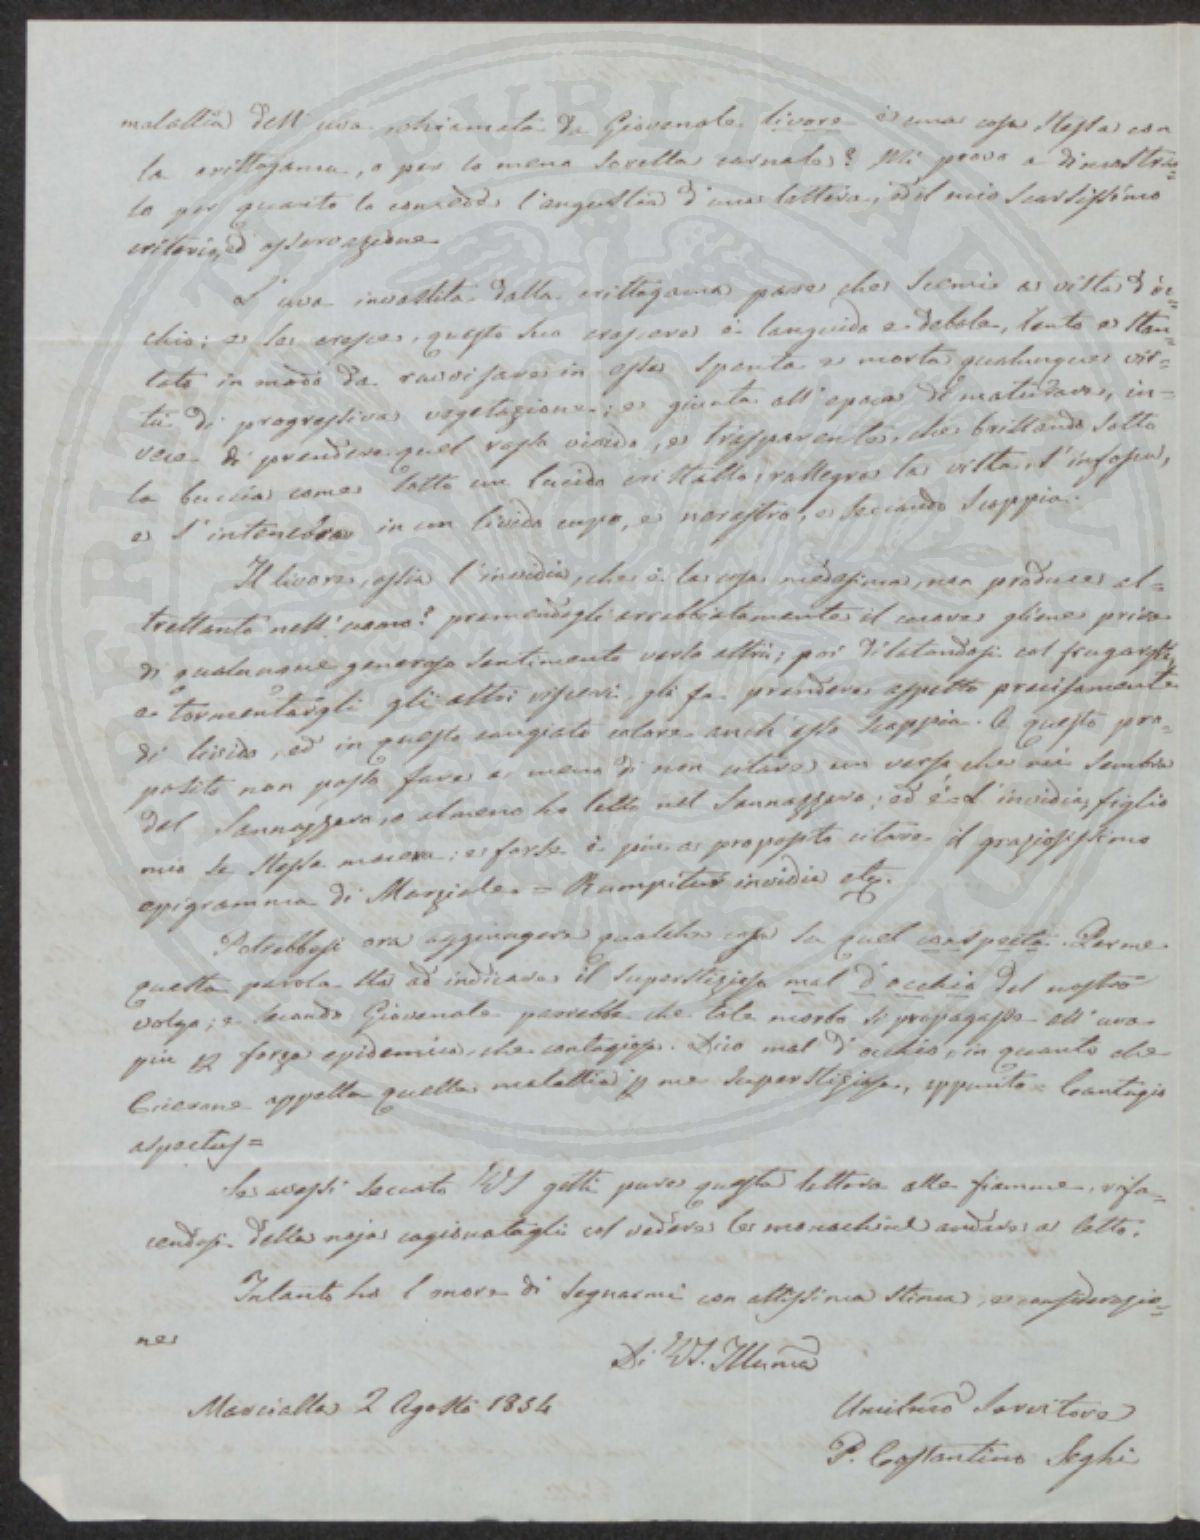 malattia dell'uva chiamata da Giovenale livore è una cosa stessa con
la crittogama, o per lo meno sorella carnale? Mi provo a dimostrar=
lo per quanto lo concede l'angustia d'una lettera, ed il mio scarsissimo
criterio, ed osservazione.
L'uva investita dalla crittogama pare che scemi a vista d'oc=
chio; e se cresce, questo suo crescere è languido e debole, lento e sten=
tato in modo da ravvisare in essa spenta e morta qualunque vir=
tù di progressiva vegetazione; e giunta all'epoca di maturare, in=
vece di prendere quel rosso vivido, e trasparente, che brillando sotto
la buccia come sotto un lucido cristallo, rallegra la vista, s'infosca,
e s'intenebra in un livido cupo, e nerastro, e seccando scoppia.
Il livore, ossia l'invidia, che è la cosa medesima, non produce al=
trettanto nell'uomo? premendogli arrabbiatamente il cuore gliene priva
di qualunque generoso sentimento verso altrui; poi dilatandosi col frugargli,
e tormentargli gli altri visceri gli fa prendere aspetto precisamente
di livido, ed in questo cangiato colore anch'esso scoppia. A questo pro=
posito non posso fare a meno di non citare un verso che mi sembra
del Sannazzaro, o almeno ho letto nel Sannazzaro; ed è = L'invidia, figlio
mio se stessa macera: e forse è più a proposito citare il graziosissimo
epigramma di Marziale = Rumpitur invidia etc.
Potrebbesi ora aggiungere qualche cosa su quel conspecta. Per me
questa parola sta ad indicare il superstizioso mal d'occhio del nostro
volgo; e secondo Giovenale parrebbe che tale morbo si propagasse all'uva
più p forza epidemica, che contagiosa. Dico mal d'occhio, in quanto che
Cicerone appella quella malattia p me superstiziosa, appunto = Contagio
aspectus =
Se avessi seccato VS getti pure questa lettera alle fiamme, rifa=
cendosi della noja cagionatagli col vedere le monachine andare a letto.
Intanto ho l'onore di segnarmi con altissima stima, e considerazio=
ne
Di VS. Illuma
Marcialla 2 Agosto 1854
Umilmo Servitore
P. Costantino Seghi